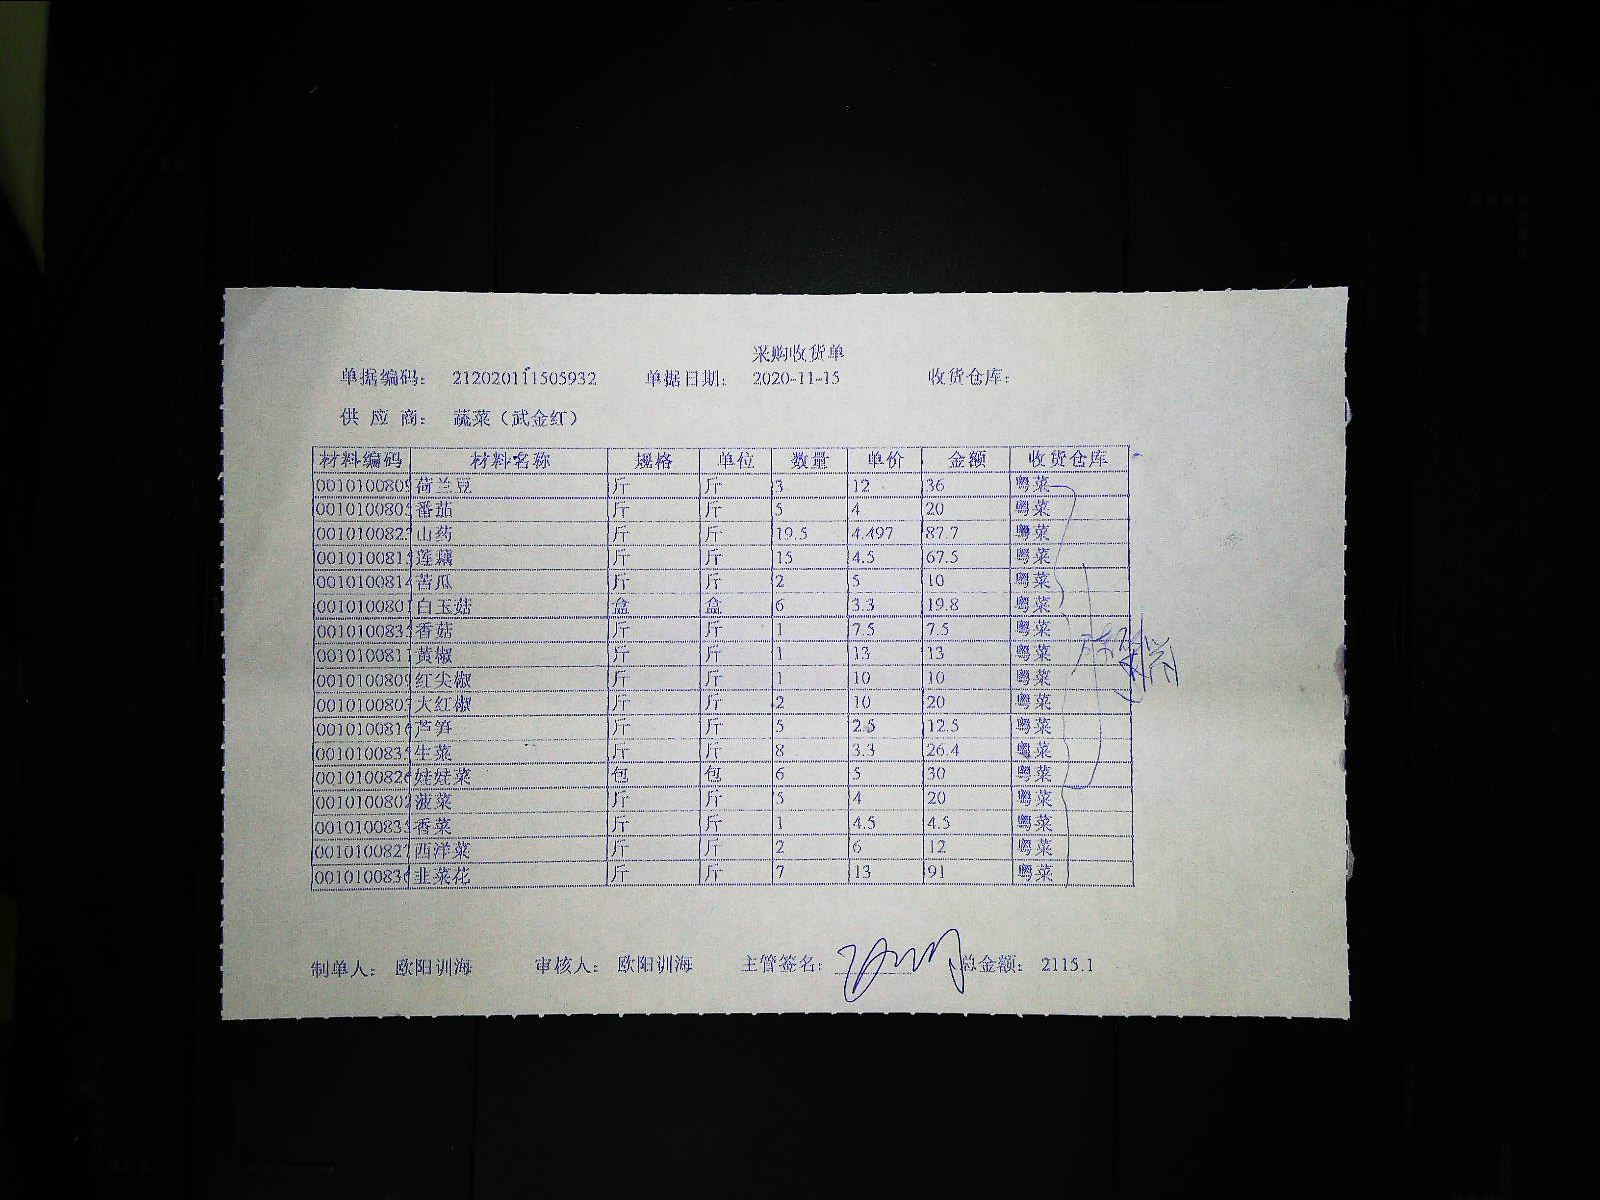 采购收货单
单据编码： 212020111505932 单据日期： 2020-11-15 收货仓库：
供 应 商： 蔬菜（武金红）
材料编码 材料名称 规格 单位 数量 单价 金额 收货仓库
0010100809 荷兰豆 斤 斤 3 12 36 粤菜
0010100805 番茄 斤 斤 5 4 20 粤菜
001010082 山药 斤 斤 19.5 4.497 87.7 粤菜
001010081 莲藕 斤 斤 15 4.5 67.5 粤菜
0010100814 苦瓜 斤 斤 2 5 10 粤菜
0010100801 白玉菇 盒 盒 6 3.3 19.8 粤菜
001010083 香菇 斤 斤 1 7.5 7.5 粤菜
0010100811 黄椒 斤 斤 1 13 13 粤菜
0010100809 红尖椒 斤 斤 1 10 10 粤菜
001010080 大红椒 斤 斤 2 10 20 粤菜
0010100816 芦笋 斤 斤 5 2.5 12.5 粤菜
001010083 生菜 斤 斤 8 3.3 26.4 粤菜
0010100826 娃娃菜 包 包 6 5 30 粤菜
0010100802 菠菜 斤 斤 5 4 20 粤菜
001010083 香菜 斤 斤 1 4.5 4.5 粤菜
0010100827 西洋菜 斤 斤 2 6 12 粤菜
0010100836 韭菜花 斤 斤 7 13 91 粤菜
制单人： 欧阳训海 审核人： 欧阳训海 主管签名： 总金额： 2115.1